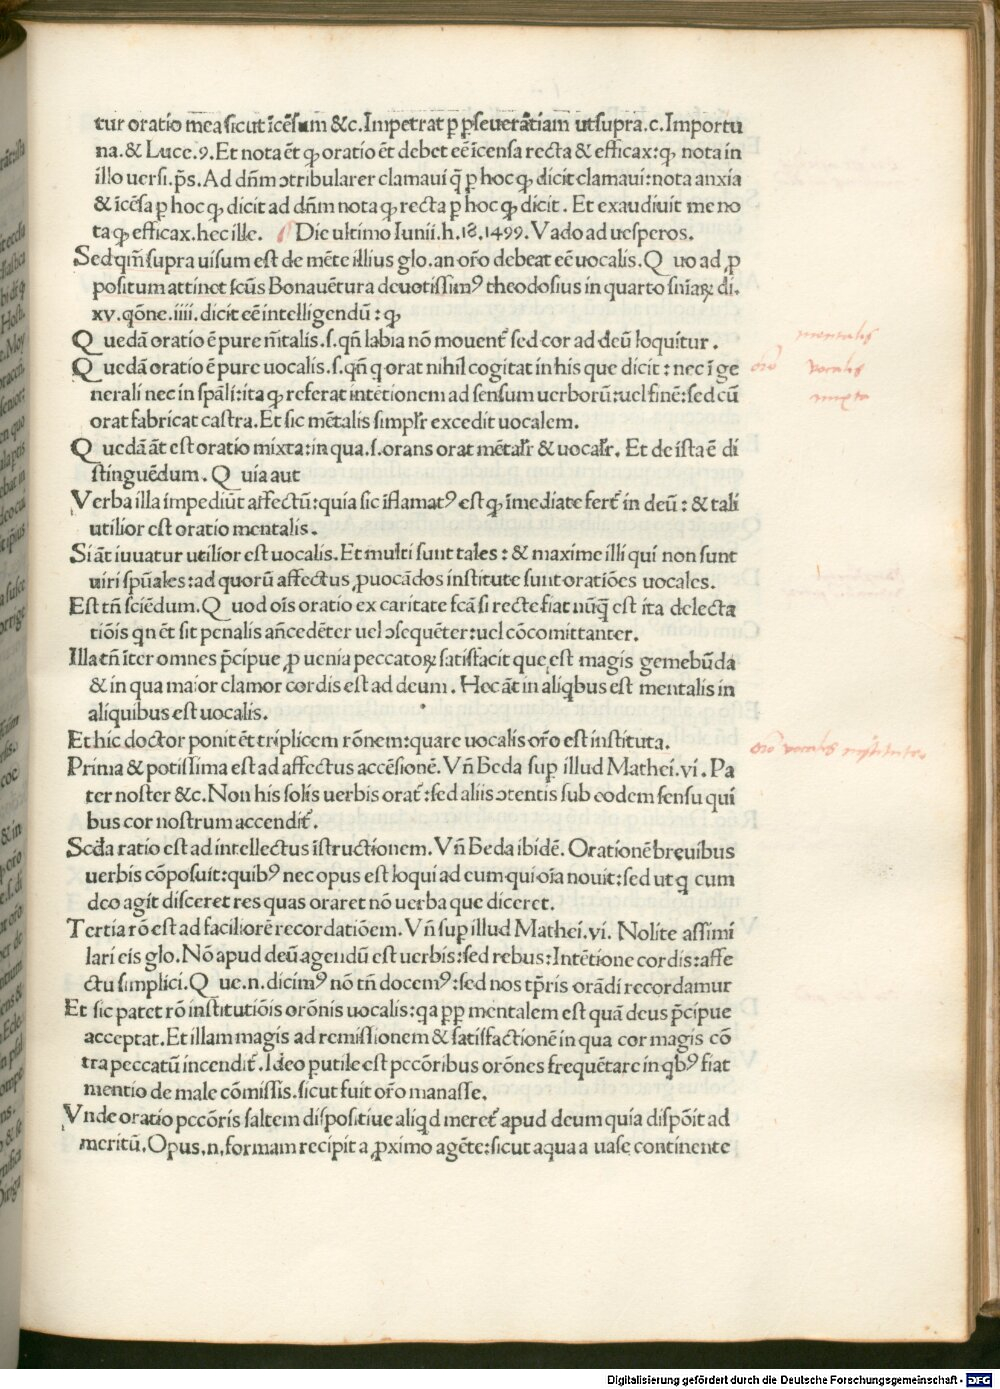 tur oratio mea sicut īcēsum &c. Impetrat p̱ p̱seuerātiam utsupra.c. Importu
na. & Luce.9. Et nota ēt ꝙ oratio ēt debet eē īcensa recta & efficax: ꝙ nota in
illo uersi. ps̄. Ad dn̄m ↄtribularer clamaui q̄ p̱ hoc ꝙ dicit clamaui: nota anxia
& īcēsa p̱ hoc ꝙ dicit ad dn̄m nota ꝙ recta p̱ hoc ꝙ dicit. Et exaudiuit me no
ta ꝙ efficax. hec ille. Die ultimo Iunii. h.18.1499. Vado ad uesperos.
Sed qm̄ supra uisum est de mēte illius glo. an orō debeat eē uocalis. Q uo ad ꝓ
positum attinet scūs Bonauētura deuotissimꝰ theodosius in quarto sn̄iaꝝ di.
xv. qōne. iiii. dicit eē intelligendū: ꝙ
Q uedā oratio ē pure mētalis. s. qn̄ labia nō mouent̄ sed cor ad deū loquitur.
Q uedā oratio ē pure uocalis. s. qn̄ q orat nihil cogitat in his que dicit: nec ī ge
nerali nec in spāli: ita ꝙ referat intētionem ad sensum uerborū: uel finē: sed cū
orat fabricat castra. Et sic mētalis simpl̄r excedit uocalem.
Q uedā āt est oratio mixta: in qua. s. orans orat mētal̄r & uocal̄r. Et de ista ē di
stinguēdum. Q uia aut
Verba illa impediūt affectū: quia sic īflamatꝰ est ꝙ īmediate fert̄ in deū: & tali
utilior est oratio mentalis.
Si āt iuuatur utilior est uocalis. Et multi sunt tales: & maxime illi qui non sunt
uiri spūales: ad quorū affectus ꝓuocādos institute sunt oratiōes uocales.
Est tn̄ sciēdum. Q uod oīs oratio ex caritate fcā si recte fiat nūq̄ est ita delecta
tiōis qn ēt sit penalis an̄cedēter uel ↄsequēter: uel cōcomittanter.
Illa tn̄ īter omnes p̄cipue ꝓ uenia peccatoꝝ satisfacit que est magis gemebūda
& in qua maior clamor cordis est ad deum. Hec āt in aliqbus est mentalis in
aliquibus est uocalis.
Et hic doctor ponit ēt triplicem rōnem: quare uocalis orō est instituta.
Prima & potissima est ad affectus accēsionē. Vn̄ Beda sup̱ illud Mathei. vi. Pa
ter noster &c. Non his solis uerbis orat̄: sed aliis ↄtentis sub eodem sensu qui
bus cor nostrum accendit̄.
Scda ratio est ad intellectus īstructionem. Vn̄ Beda ibidē. Orationē breuibus
uerbis cōposuit: quibꝰ nec opus est loqui ad eum qui oīa nouit: sed ut q cum
deo agit disceret res quas oraret nō uerba que diceret.
Tertia rō est ad faciliorē recordatiōem. Vn̄ sup̱ illud Mathei. vi. Nolite assimi
lari eis glo. Nō apud deū agendū est uerbis: sed rebus: Intētione cordis: affe
ctu simplici. Q ue. n. dicimꝰ nō tn̄ docemꝰ: sed nos tp̄ris orādi recordamur
Et sic patet rō institutiōis orōnis uocalis: qa p̱p̱ mentalem est quā deus p̄cipue
acceptat. Et illam magis ad remissionem & satisfactionē in qua cor magis cō
tra peccatū incendit̄. Ideo p̱utile est pccōribus orōnes frequētare in qbꝰ fiat
mentio de male cōmissis. sicut fuit orō manasse.
Vnde oratio pccōris saltem dispositiue aliqd meret̄ apud deum quia dispōit ad
meritū. Opus. n. formam recipit a ꝓximo agēte: sicut aqua a uase continente
mentalis
orō vocalis
mixta
orō vocalis instituta
Digitalisierung gefördert durch die Deutsche Forschungsgemeinschaft - DFG